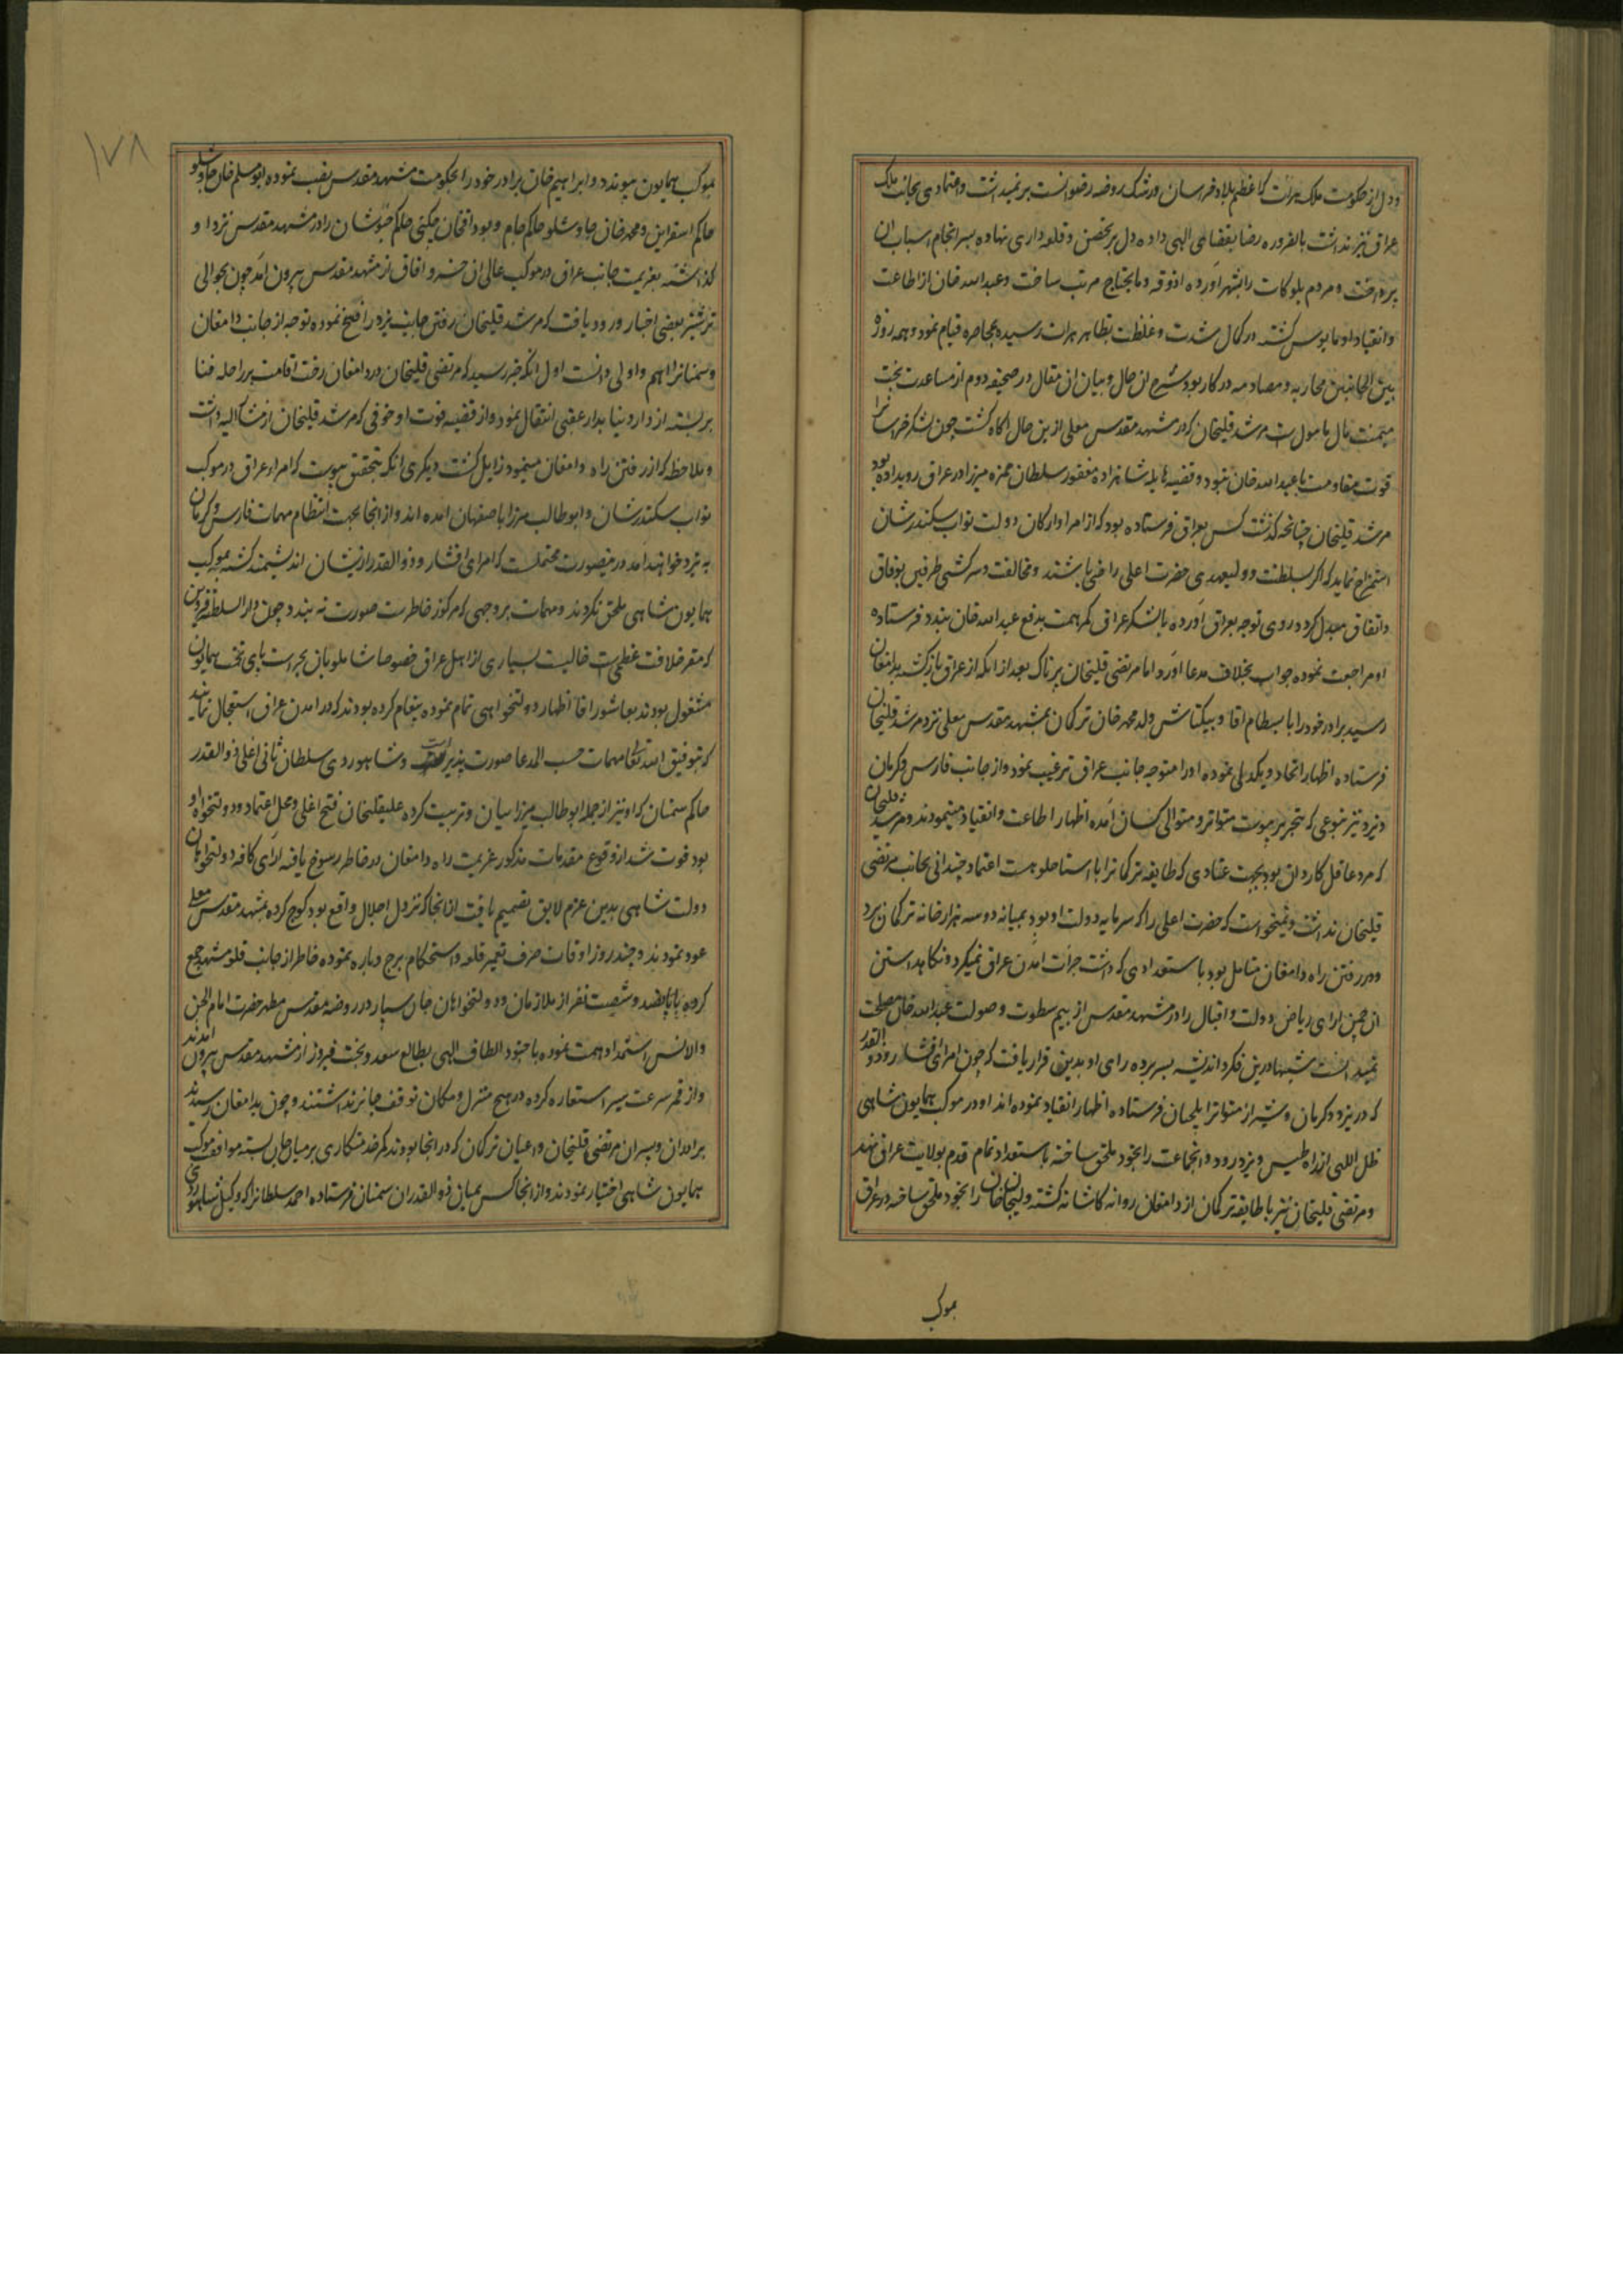 ودل از حکومت ملک هرات که اعظم بلاد خراسان ورشک روضه رضوانست برنمیداشت واعتمادی بجانب ملک
عراق نیز نداشت بالضروره رضا بقضای الهی داده دل بر تحصن وقلعه داری نهاده بسرانجام اسباب ان
پرداخت ومردم بلوکات را بشهر آورده اذوقه ومایحتاج مرتب ساخت وعبدالله خان از اطاعت
وانقیاد او مایوس کشته در کمال شدت وغلظت بظاهر هرات رسیده بمحاصره قیام نمود وهمه روزه
بین الجانبین محاربه ومصادمه در کار بود شرح ان حال وبیان ان مقال در صحیفه دوم از مساعدت بخت
میمنت مال مامول است مرشد قلیخان که در مشهد مقدس معلی ازین حال اکاه کشت چون لشکر خراسانرا
قوت مقاومت با عبدالله خان نبود وقضیه هایله شاهزاده مغفور سلطان حمزه میرزا در عراق رویداده بود
مرشد قلیخان چنانچه کذشت کس بعراق فرستاده بود که از امرا وارکان دولت نواب سکندرشان
استمزاج نماید که اکر بسلطنت وولیعهدی حضرت اعلی راضی باشند ومخالفت وسرکشی طرفین بوفاق
واتفاق مبدل کردد روی توجه بعراق آورده بالشکر عراق کمر همت بدفع عبدالله خان بندد فرستاده
او مراجعت نموده جواب بخلاف مدعا آورد اما مرتضی قلیخان پرناک بعد از انکه از عراق بازکشته بدامغان
رسید برادر خود را با بسطام اقا وبیکتاش ولد محمد خان ترکمان بمشهد مقدس معلی نزد مرشد قلیخان
فرستاده اظهار اتحاد ویکدلی نموده او را متوجه جانب عراق ترغیب نمود واز جانب فارس وکرمان
ویزد نیز بنوعی که بتحریر پیوست متواتر ومتوالی کسان آمده اظهار اطاعت وانقیاد مینمودند ومرشد قلیخان
که مرد عاقل کاردان بود بجهت عنادی که طایفه ترکمانرا با استاجلو هست اعتماد چندانی بجانب مرتضی
قلیخان نداشت ونمیخواست که حضرت اعلی را که سرمایه دولت او بود بمیانه دو سه هزار خانه ترکمان برد
ودر رفتن راه دامغان متامل بود با استعدادی که داشت جرات امدن عراق نمیکرد ونکاهداستن
ان چمن ارای ریاض دولت واقبال را در مشهد مقدس از بیم سطوت وصولت عبدالله خان مصلحت
نمیدانست شبها درین فکر واندیشه بسر برده رای او بدین قرار یافت که چون امرای افشار وذوالقدر
که در یزد وکرمان وشیراز متواترا ایلچیان فرستاده اظهار انقیاد نموده اند او در موکب همایون شاهی
ظل اللهی از راه طبس ویزد رود وانجماعت را بخود ملحق ساخته باستعداد تمام قدم بولایت عراق نهد
ومرتضی قلیخان نیز با طایفه ترکمان از دامغان روانه کاشانه کشته ولیجان خان را بخود ملحق ساخته در عراق
بموکب
١٧٨
بموکب همایون پیوندد وابراهیم خان برادر خود را بحکومت مشهد مقدس نصب نموده ابومسلم خان چاوشلو
حاکم اسفراین ومحمد خان چاوشلو حاکم جام وبوداقخان چکنی حاکم خبوشان را در مشهد مقدس نزد او
کذاشته بعزیمت جانب عراق در موکب عالی ان خسرو افاق از مشهد مقدس بیرون آمد چون بحوالی
ترشیز بعضی اخبار ورود یافت که مرشد قلیخان رفتن جانب یزد را فسخ نموده توجه از جانب دامغان
وسمنانرا اهم واولی دانست اول انکه خبر رسید که مرتضی قلیخان در دامغان رخت اقامت بر راحله فنا
بر بسته از دار دنیا بدار عقبی انتقال نمود واز قضیه فوت او خوفی که مرشد قلیخان از مشارالیه داشت
وملاحظه که از رفتن راه دامغان مینمود زایل کشت دیکری انکه بتحقیق پیوست که امراء عراق در موکب
نواب سکندرشان وابوطالب میرزا باصفهان امده اند واز انجا بجهت انتظام مهمات فارس وکرمان
به یزد خواهند امد درینصورت محتملست که امرای افشار وذوالقدر ازیشان اندیشمند کشته بموکب
همایون شاهی ملحق نکردند ومهمات بر وجهی که مرکوز خاطرست صورت نه بندد چون دارالسلطنه قزوین
که مقر خلافت عظمی است خالیست بسیاری از اهل عراق خصوصا شاملویان بحراست پای تخت همایون
مشغول بودند بعاشور اقا اظهار دولتخواهی تمام نموده پیغام کرده بودند که در امدن عراق استعجال نمایند
که بتوفیق الله تعالی مهمات حسب المدعا صورت پذیر است وشاهوردی سلطان ثانی اغلی ذوالقدر
حاکم سمنان که او نیز از جمله ابوطالب میرزاییان وتربیت کرده علیقلیخان فتح اغلی ومحل اعتماد ودولتخواه او
بود فوت شد از وقوع مقدمات مذکور عزیمت راه دامغان در خاطر رسوخ یافته ارای کافه دولتخواهان
دولت شاهی بدین عزم لایق تصمیم یافت از انجا که نزول اجلال واقع بود کوچ کرده بمشهد مقدس معلی
عود نمودند وچند روز اوقات صرف تعمیر قلعه واستحکام برج وباره نموده خاطر از جانب قلعه مشهد جمع
کرده با پانصد وشصت نفر از ملازمان ودولتخواهان جان سپار در روضه مقدس مطهر حضرت امام الجن
والانس استمداد همت نموده با جنود الطاف الهی بطالع سعد وبخت فیروز از مشهد مقدس بیرون امدند
واز قمر سرعت سیر استعاره کرده در هیچ منزل ومکان توقف جایز نداشتند وچون بدامغان رسیدند
برادران وپسران مرتضی قلیخان واعیان ترکمان که در انجا بودند کمر خدمتکاری بر میان جان بسته موافقت موکب
همایون شاهی اختیار نمودند واز انجا کس بمیان ذوالقدران سمنان فرستاده احمد سلطانرا که وکیل شاهوردی